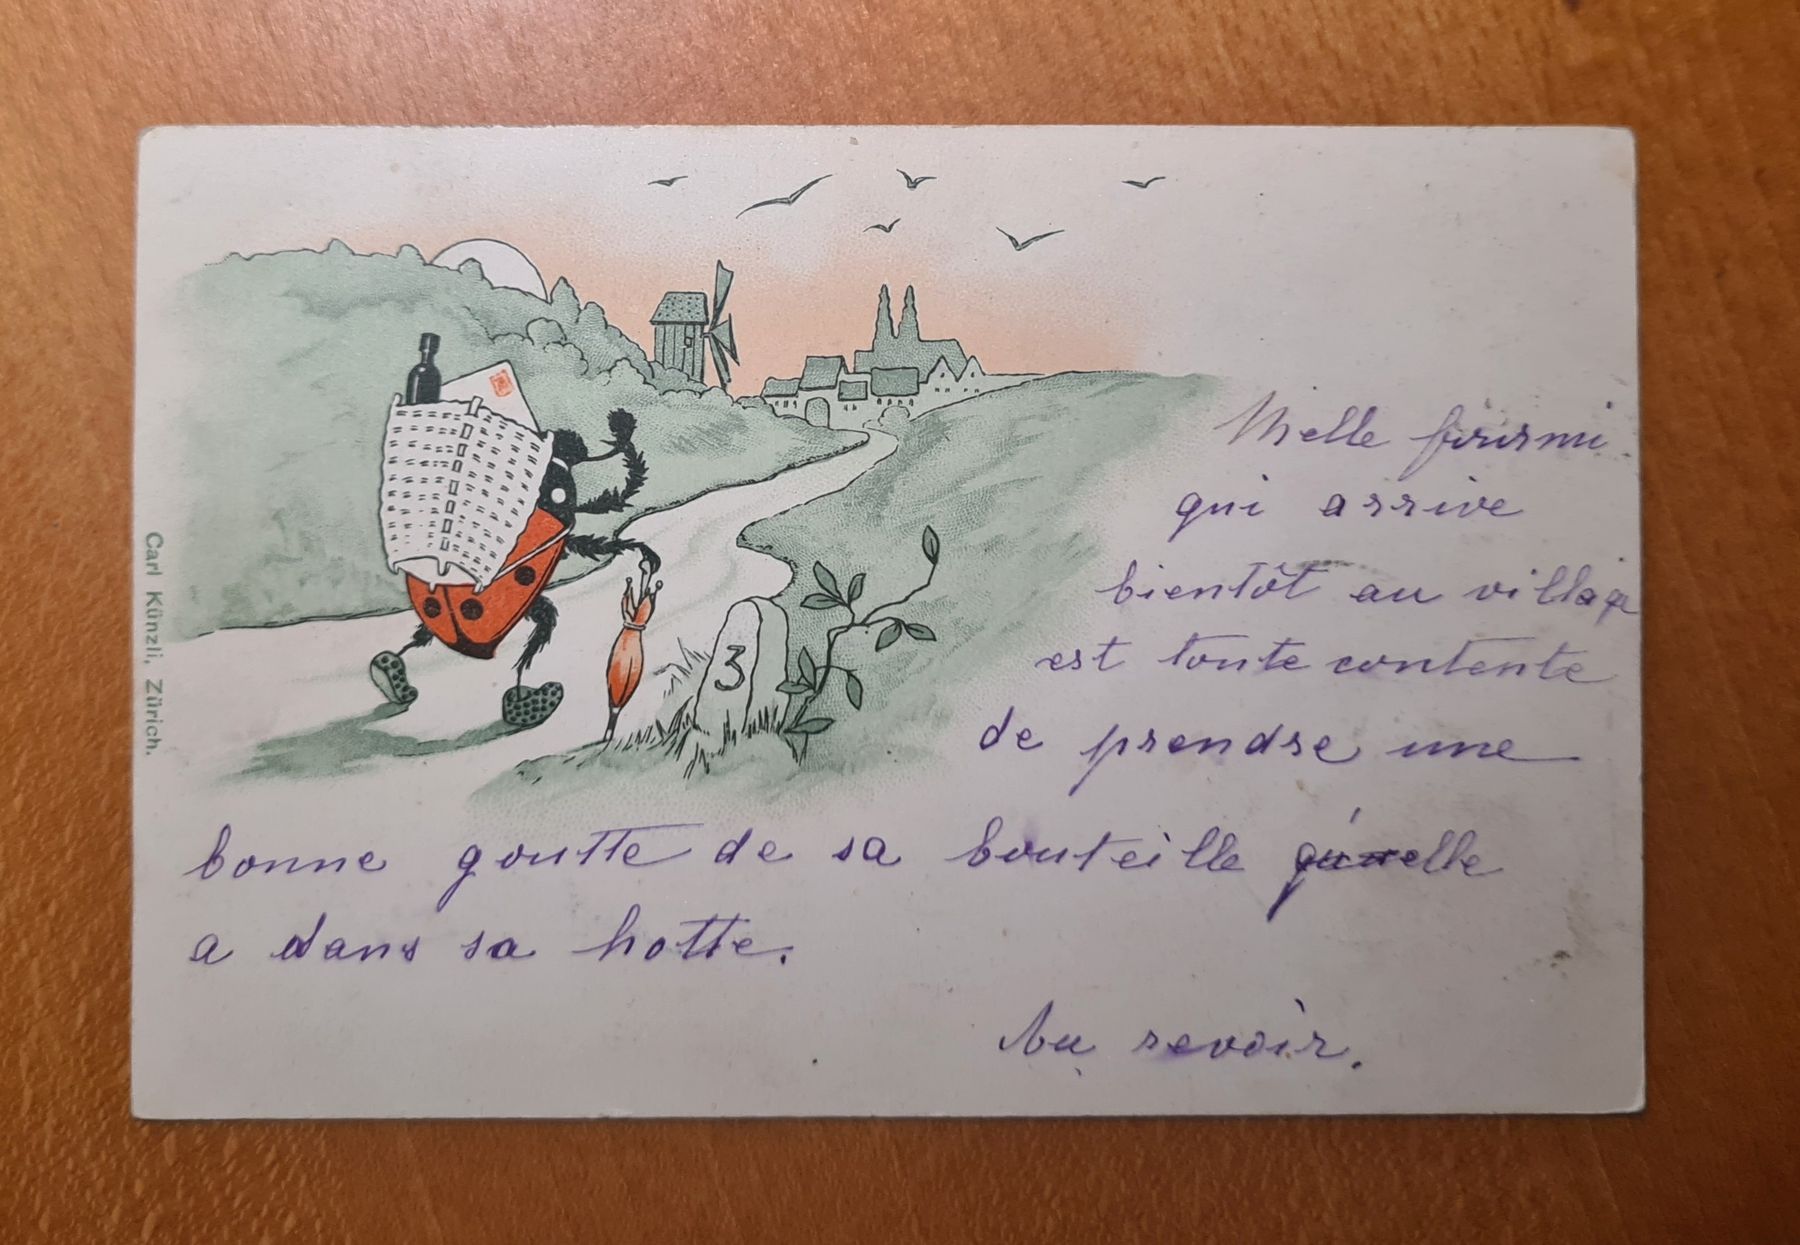 Carl Künzli, Zürich.
3
Melle fourmi
qui arrive
bientôt au village
est toute contente
de prendre une
bonne goutte de sa bouteille qu'elle
a dans sa hotte.
Au revoir.